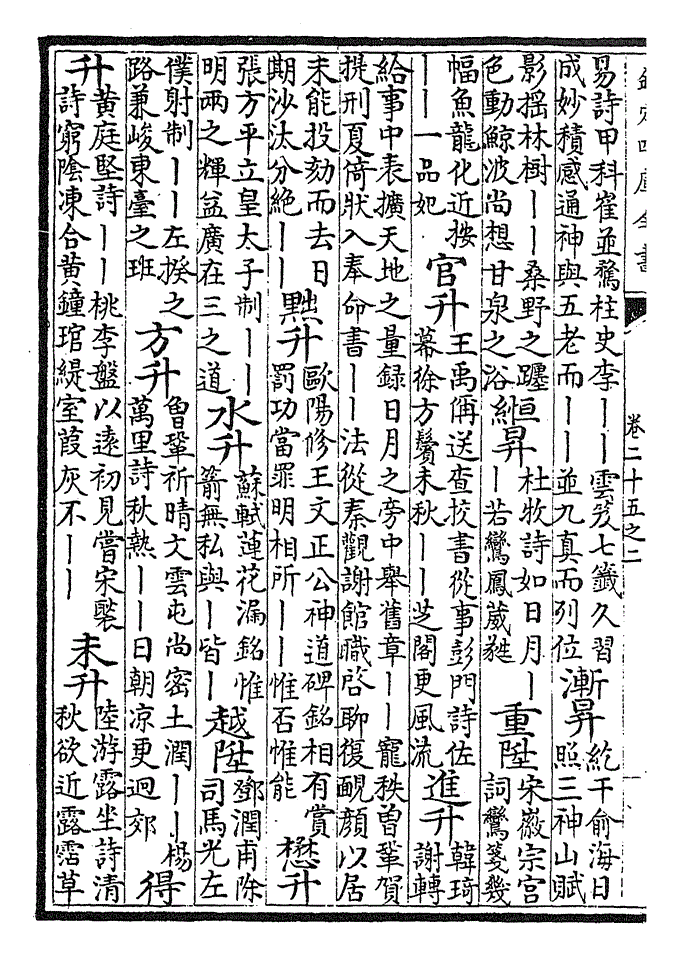 欽定四庫全書
卷二十五之二
易詩甲科寉並騖柱史李丨丨雲笈七籤久習
成妙積感通神與五老而丨丨並九真而列位
漸昇
紇干俞海日
照三神山賦
影揺林樹丨丨桑野之躔
色動鯨波尚想甘泉之浴
絙昇
杜牧詩如日月丨
丨若鸞鳳葳蕤
重陞
宋徽宗宫
詞鸞箋幾
幅魚龍化近按
丨丨一品妃
官升
王禹偁送查挍書從事彭門詩佐
幕徐方鬢未秋丨丨芝閣更風流
進升
韓琦
謝轉
給事中表擴天地之量録日月之旁中舉舊章丨丨寵秩曽鞏賀
提刑夏倚狀入奉命書丨丨法從秦觀謝館職啓聊復靦顔以居
未能投劾而去日
期沙汰分絶丨丨
黜升
歐陽修王文正公神道碑銘相有賞
罰功當罪明相所丨丨惟否惟能
懋升
張方平立皇太子制丨丨
明兩之輝益廣在三之道
水升
蘇軾蓮花漏銘惟
箭無私與丨皆丨
越陞
鄧潤甫除
司馬光左
僕射制丨丨左揆之
路兼峻東臺之班
方升
曽鞏祈晴文雲屯尚密土潤丨丨楊
萬里詩秋熱丨丨日朝凉更迥郊
得
升
黄庭堅詩丨丨桃李盤以逺初見嘗宋褧
詩窮陰凍合黄鐘琯緹室葭灰不丨丨
未升
陸游露坐詩清
秋欲近露霑草